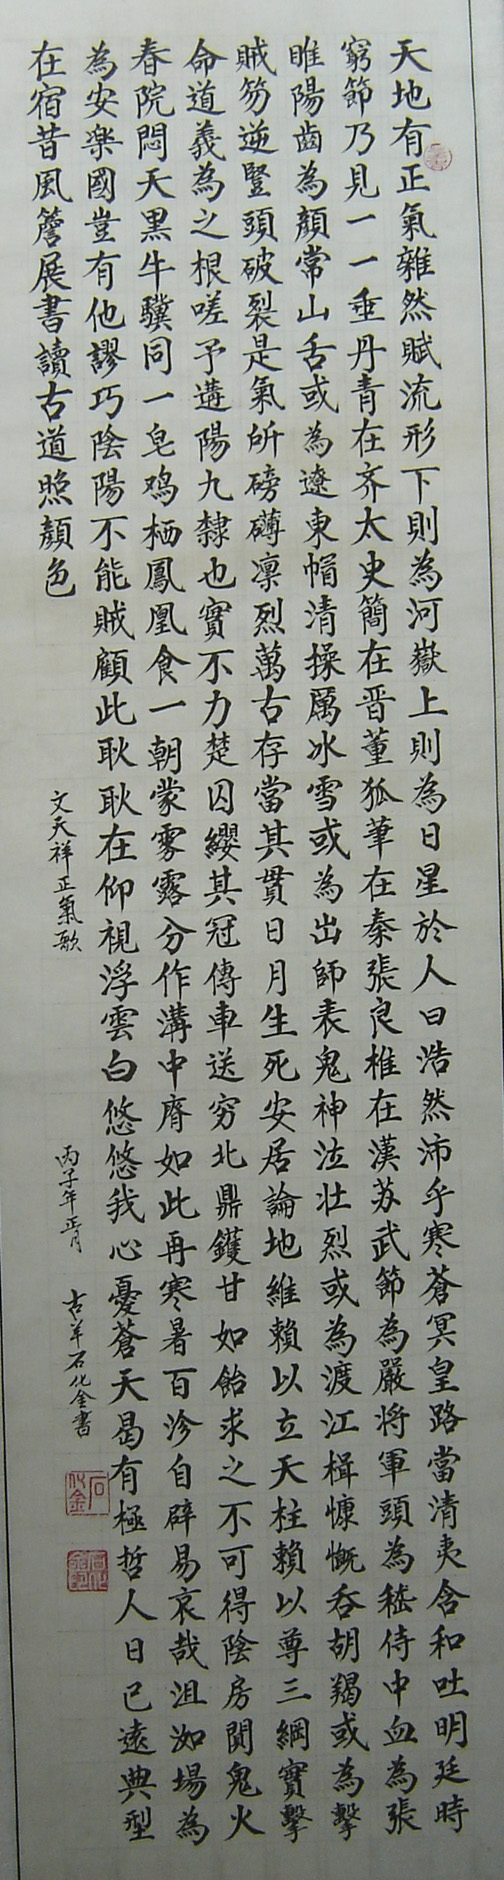 天地有正氣雜然賦流形下則為河嶽上則為日星於人曰浩然沛乎塞蒼冥皇路當清夷含和吐明廷時
窮節乃見一一垂丹青在齐太史簡在晋董狐筆在秦張良椎在漢苏武節為嚴将軍頭為嵇侍中血為張
睢陽齒為顏常山舌或為遼東帽清操厲冰雪或為出師表鬼神泣壮烈或為渡江楫慷慨吞胡羯或為擊
賊笏逆豎頭破裂是氣所磅礴凛烈萬古存當其貫日月生死安居論地維賴以立天柱賴以尊三綱實擊
命道義為之根嗟予遘陽九隸也實不力楚囚纓其冠傳車送穷北鼎鑊甘如飴求之不可得陰房閴鬼火
春院悶天黑牛驥同一皂鸡栖鳳凰食一朝蒙雾露分作溝中瘠如此再寒暑百沴自辟易哀哉沮洳場為
為安樂國豈有他謬巧陰陽不能賊顧此耿耿在仰視浮雲白悠悠我心憂蒼天曷有極哲人日已遠典型
在宿昔風簷展書讀古道照顏色
文天祥正氣歌
丙子年正月 吉羊石化金書
石化金